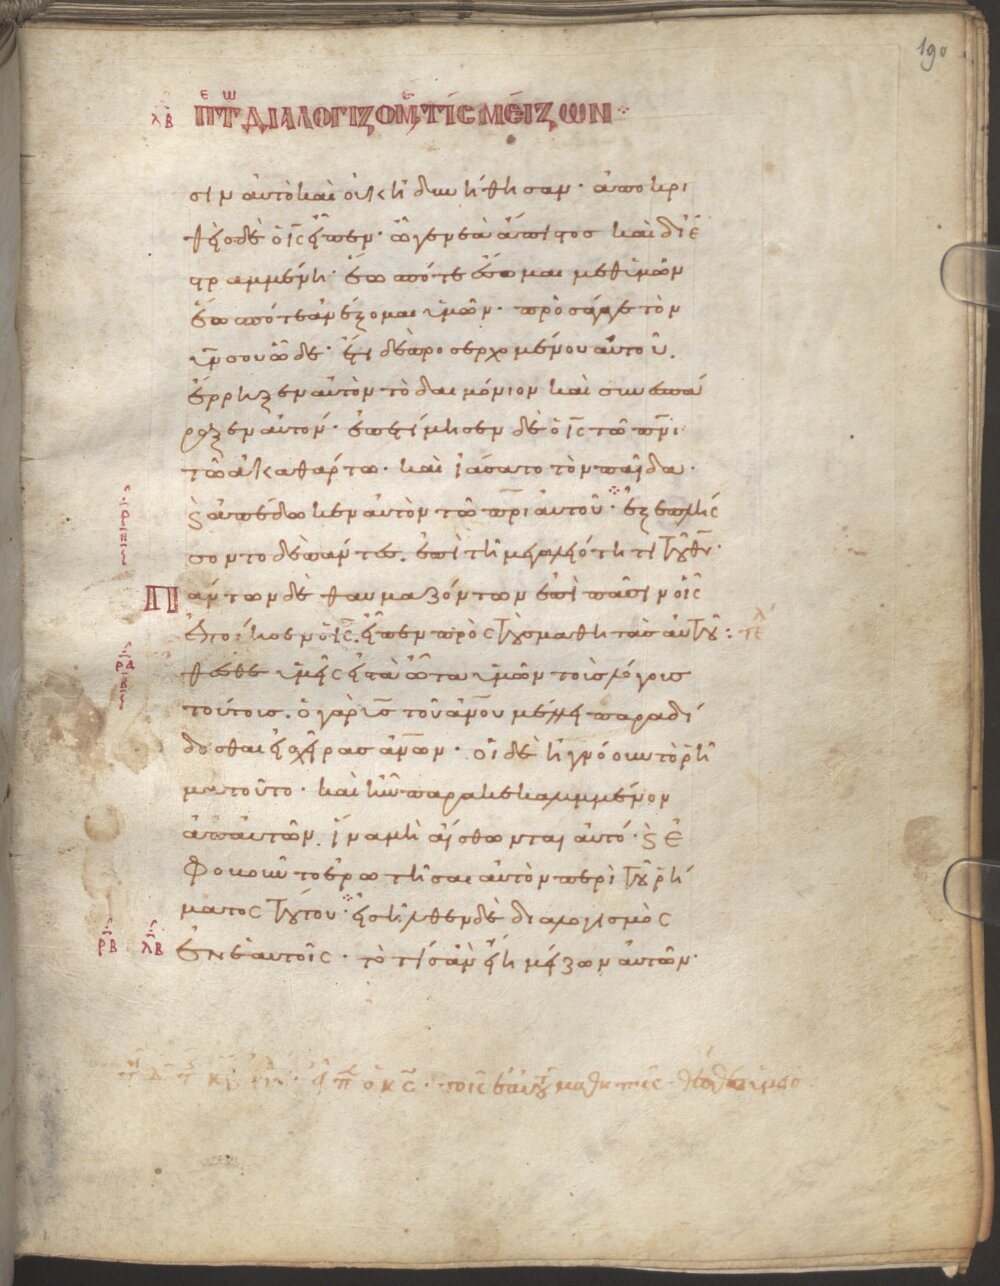 190
λβ πτ διαλογιζομ τίς μείζων
σιν αὐτὸ καὶ οὐκ ἠδυνήθησαν· ἀποκρι
θεὶς δὲ ὁ ις εἶπεν· ὦ γενεὰ ἄπιστος καὶ διε
στραμμένη· ἕως πότε ἔσομαι μεθ' ἡμῶν
ἕως πότε ἀνέξομαι ὑμῶν· προσάγαγε τὸν
υἱν σου ὧδε· ἔτι δὲ προσερχομένου αὐτοῦ.
ἔρρηξεν αὐτὸν τὸ δαιμόνιον καὶ συνεσπά
ραξεν αὐτόν· ἐπετίμησεν δὲ ὁ ις τῶ πνι
τῶ ἀκαθάρτω· καὶ ἰάσατο τὸν παῖδα·
ϗ ἀπέδωκεν αὐτὸν τῶ πρι αὐτοῦ· ἐξεπλήσ
σοντο δὲ πάντες. ἐπὶ τῆ μεγαλειότητι τοῦ θυ·
Πάντων δὲ θαυμαζόντων ἐπὶ πᾶσιν οἷς
ἐποίησεν ὁ ις. εἶπεν πρὸς τοὺς μαθητὰς αὐτοῦ:
θέσθε ὑμεῖς εἰς τὰ ὦτα ὑμῶν τοὺς λόγους
τούτους. ὁ γὰρ υς τοῦ ανου μέλλει παραδί
δοσθαι εἰς χεῖρας ανων· οἱ δὲ ἠγνόουν τὸ ῥῆ
μα τοῦτο· καὶ ἦν παρακεκαλυμμένον
ἀπ' αὐτῶν. ἵνα μὴ αἴσθωνται αὐτό· ϗ ἐ
φοβοῦντο ἐρωτῆσαι αὐτὸν περὶ τοῦ ῥή
ματος τούτου· εἰσῆλθεν δὲ διαλογισμὸς
ρβ λβ ἐν ἑαυτοῖς· τὸ τίς ἂν εἴη μείζων αὐτῶν·
εἶπεν ὁ κς· τοῖς ἑαυτοῦ μαθηταῖς θέσθε ὑμεῖς